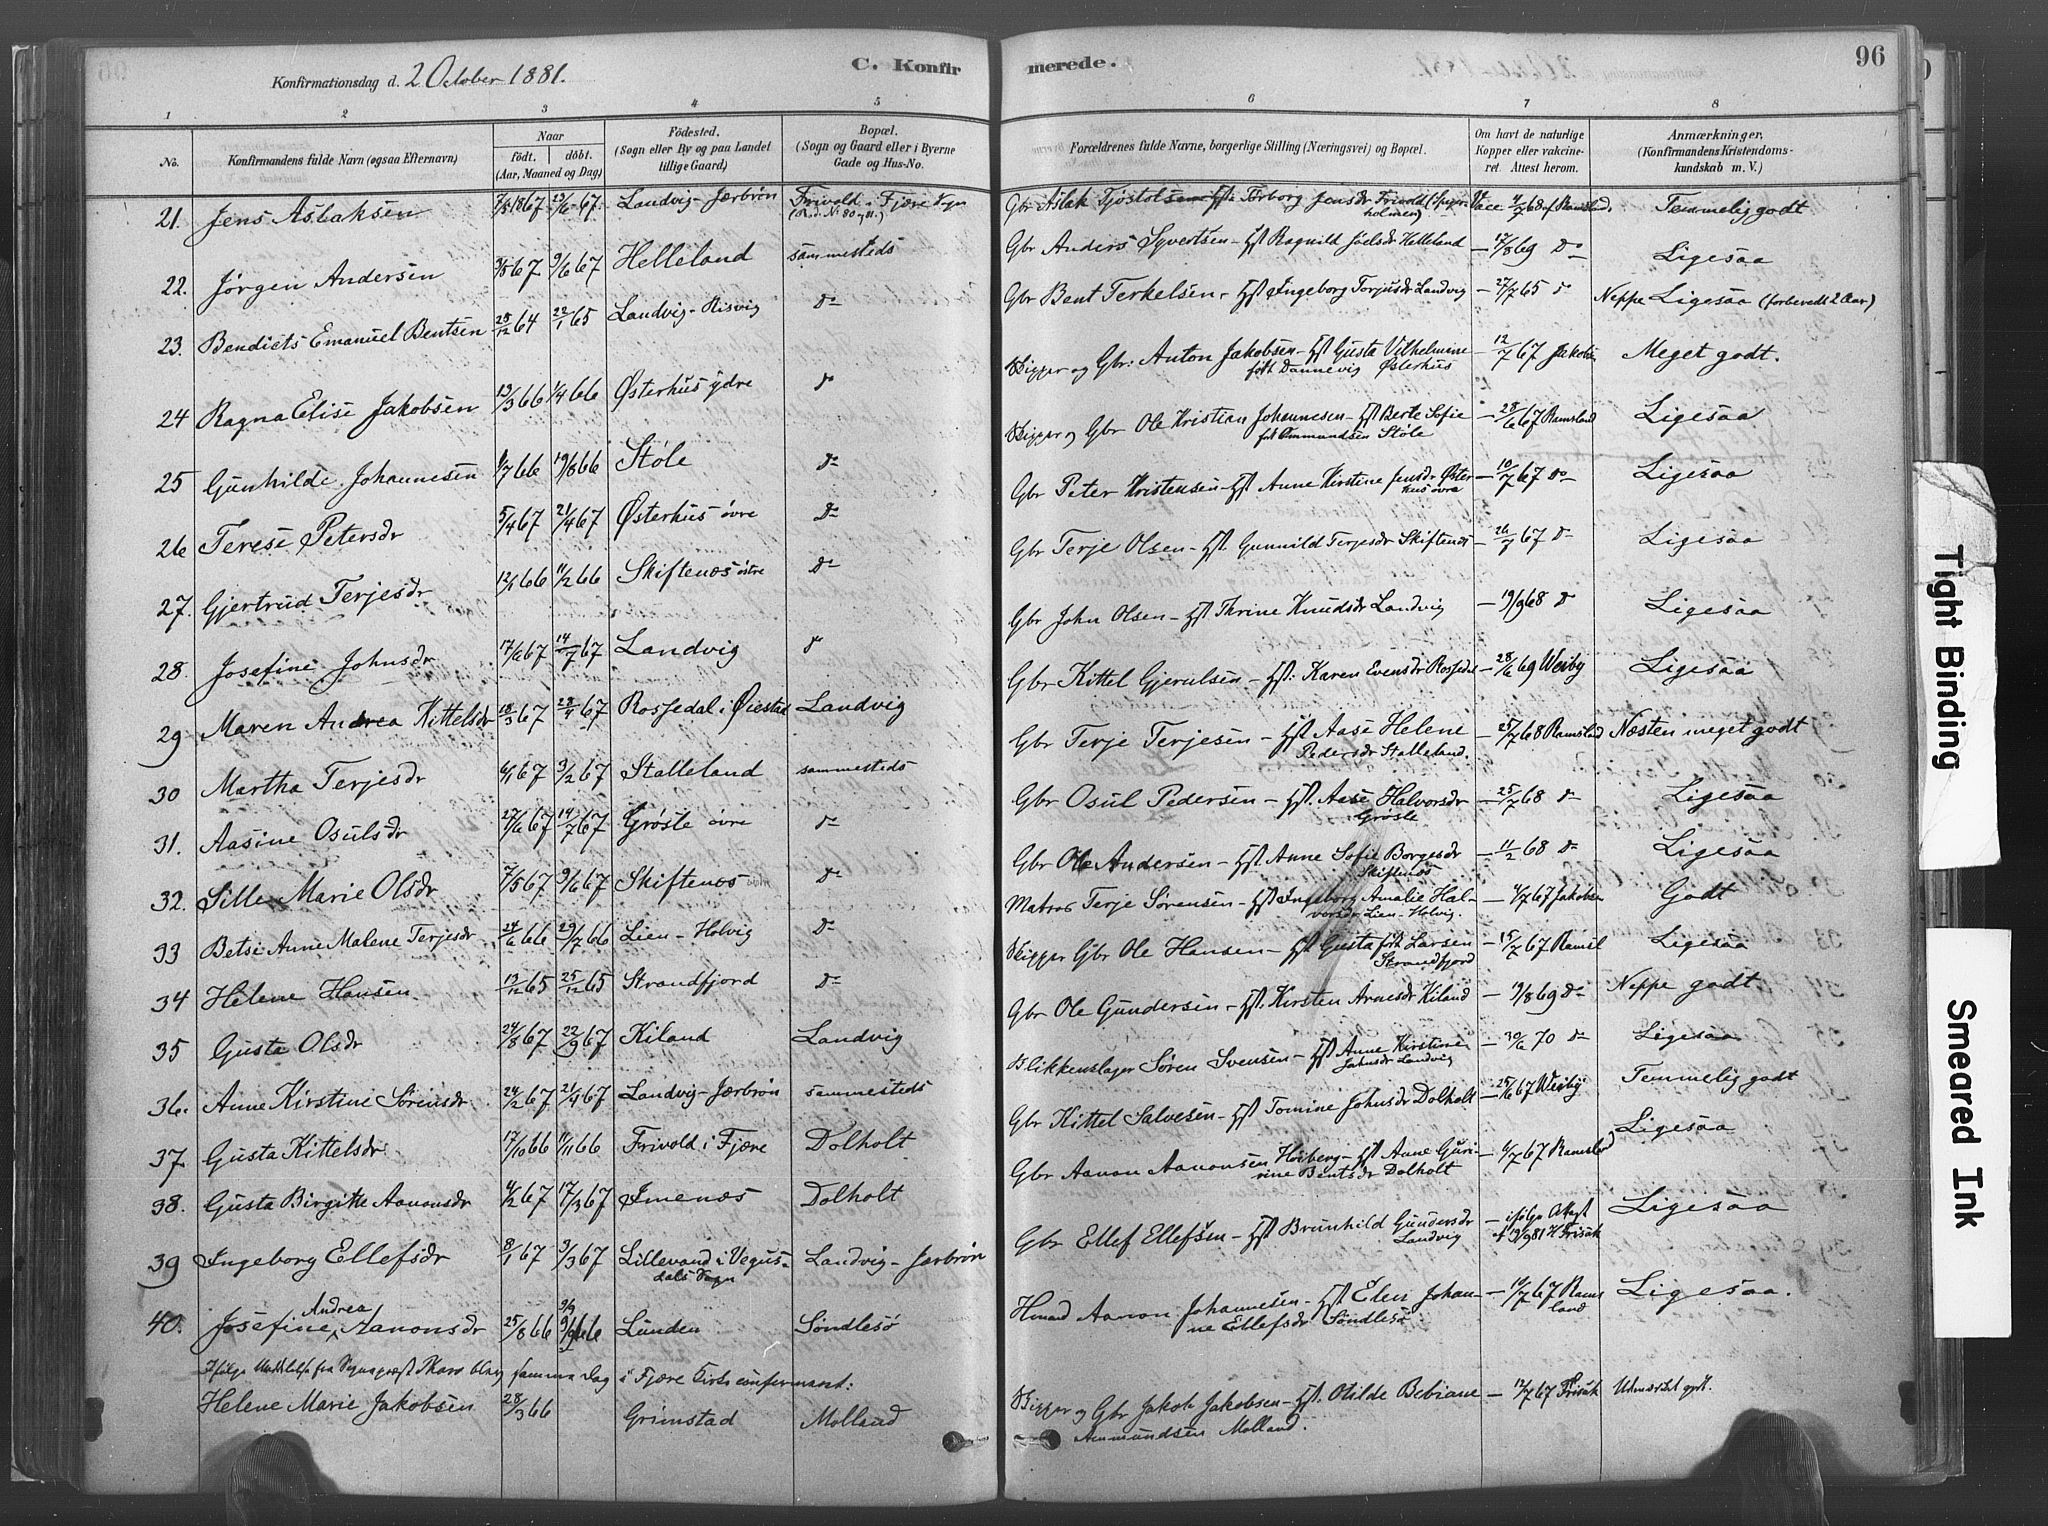 Konfirmationsdag d. 2 October 1881.
C. Konfir
merede.
96
1 2 3 4 5 6 7 8
No.
Konfirmandens fulde Navn (ogsaa Efternavn)
Naar
födt. döbt.
(Aar, Maaned og Dag)
Födested.
(Sogn eller By og paa Landet
tillige Gaard)
Bopæl.
(Sogn og Gaard eller i Byerne
Gade og Hus-No.
Forældrenes fulde Navne, borgerlige Stilling (Næringsvei) og Bopæl.
Om havt de naturlige
Kopper eller vakcine-
ret. Attest herom.
Anmærkninger.
(Konfirmandens Kristendoms-
kundskab m. V.)
21. Jens Aslaksen 7/5 1867 23/6 67. Landvig-Jærbrøn Frivold i Fjære Sogn
Gbr Aslak Tjøstolsen Hst Torborg Jensdr Frivold Vacc 4/7 68 af Ramsland. Temmelig godt
22. Jørgen Andersen 3/5 67 9/6 67 Helleland sammesteds Gbr Anders Syvertsen - Hst Ragnild Joelsdr Helleland — 17/8 69 Do Ligesaa
23. Bendicts Emanuel Bentsen 28/12 64 22/1 65 Landvig-Risvig Do Gbr Bent Terkelsen, Hst Ingeborg Torjusdr Landvig — 27/7 65 Do Neppe Ligesaa (forberedt 2 Aar)
24 Ragna Elise Jakobsen 13/3 66 1/4 66 Østerhus ydre Do Skipper og Gbr: Anton Jakobsen - Hst Gusta Vilhelmine — 12/7 67 Jakobsen Meget godt.
født Dannevig Østerhus
25 Gunhilde Johannesen 1/7 66 19/8 66 Støle Do Skipper og Gbr Ole Kristian Johannesen - Hst Berte Sofie — 28/6 67 Ramsland Ligesaa
født Ommundsen Støle
26 Terese Petersdr 5/4 67 21/4 67 Østerhus øvre Do Gbr Peter Kristensen - Hst Anne Kirstine Jensdr Øster — 10/7 67 Do Ligesaa
hus øvre
27. Gjertrud Terjesdr 12/1 66 11/2 66 Skiftenæs østre Do Gbr Terje Olsen - Hst. Gunnild Terjesdr Skiftenæs — 26/7 67 Do Ligesaa
28. Josefine Johnsdr 17/6 67 14/7 67 Landvig Do Gbr John Olsen - Hst Thrine Knudsdr Landvig — 19/9 68 Do Ligesaa
29 Maren Andrea Kittelsdr 18/3 67 28/4 67 Rossedal i Øiestad Landvig Gbr Kittel Gjerulsen - Hst: Karen Evensdr Rossedal — 28/6 69 Weiby Ligesaa
30 Martha Terjesdr 6/1 67 3/2 67 Stalleland sammesteds Gbr Terje Terjesen - Hst Aase Helene — 25/7 68 Ramslnd Næsten meget godt
Pedersdr Stalleland.
31. Aasine Osulsdr 27/6 67 14/7 67 Grøsle øvre Do Gbr Osul Pedersen - Hst. Aase Halvorsdr — 25/7 68 Do Ligesaa
Grøsle
32. Sille Marie Olsdr 7/5 67 9/6 67 Skiftenæs Do Gbr Ole Andersen - Hst Anne Sofie Borgesdr — 11/2 68 Do Ligesaa
Skiftenæs
33 Betsi Anne Malene Terjesdr 24/6 66 29/7 66 Lien - Holvig Do Matros Terje Sørensen - Hst Ingeborg Amalie Hal- — 4/7 67 Jakobsen Godt
vorsdr Lien - Holvig.
34 Helene Hansen 13/12 65 25/12 65 Strandfjord Do Skipper Gbr Ole Hansen - Hst Gusta født Larsen — 15/7 67 Ramsl Ligesaa
Strandfjord
35 Gusta Olsdr 24/8 67 22/9 67 Kiland Landvig Gbr Ole Gundersen - Hst. Kirsten Arnesdr Kiland — 19/8 69 Do Neppe godt
36. Anne Kirstine Sørensdr 24/2 67 21/4 67 Landvig-Jærbrøn sammesteds Blikkenslager Søren Svensen - Hst Anne Kirstine — 30/6 70 Do Ligesaa
Landvig
37. Gusta Kittelsdr 17/10 66 1/11 66 Frivold i Fjære Dolholt Gbr Kittel Salvesen - Hst Tomine Johnsdr Dolholt — 25/6 67 Weiby Temmelig godt
38. Gusta Birgitte Aanonsdr 4/2 67 17/3 67 Imenæs Dolholt Gbr Aanon Aanonsen Høiberg - Hst Anne Guri- — 4/7 67 Ramslnd Ligesaa
rine Bentsdr Dolholt
39 Ingeborg Ellefsdr 8/1 67 3/3 67 Lillevand i Vegus- Landvig-Jærbrøn Gbr Ellef Ellefsen - Hst Brunhild Gundersdr — ifølge Attest Ligesaa
dals Sogn Landvig af 19/9 81 H Frisak
40. Josefine Andrea Aanonsdr 25/8 66 9/9 66 Lunden Søndlesø Hmand Aanon Johannesen - Hst Elen Johan- — 10/7 67 Rams Ligesaa.
ne Ellefsdr Søndlesø land
Ifølge Meddelelse fra Sogneprest blev samme Dag i Fjære Kirke confirmeret:
Helene Marie Jakobsen 28/3 66 Grimstad Molland Skipper og Gbr Jakob Jakobsen - Hst. Otilde Bebiane — 12/7 67 Frisak Udmærket godt.
Ammundsen Molland.
Tight Binding
Smeared Ink